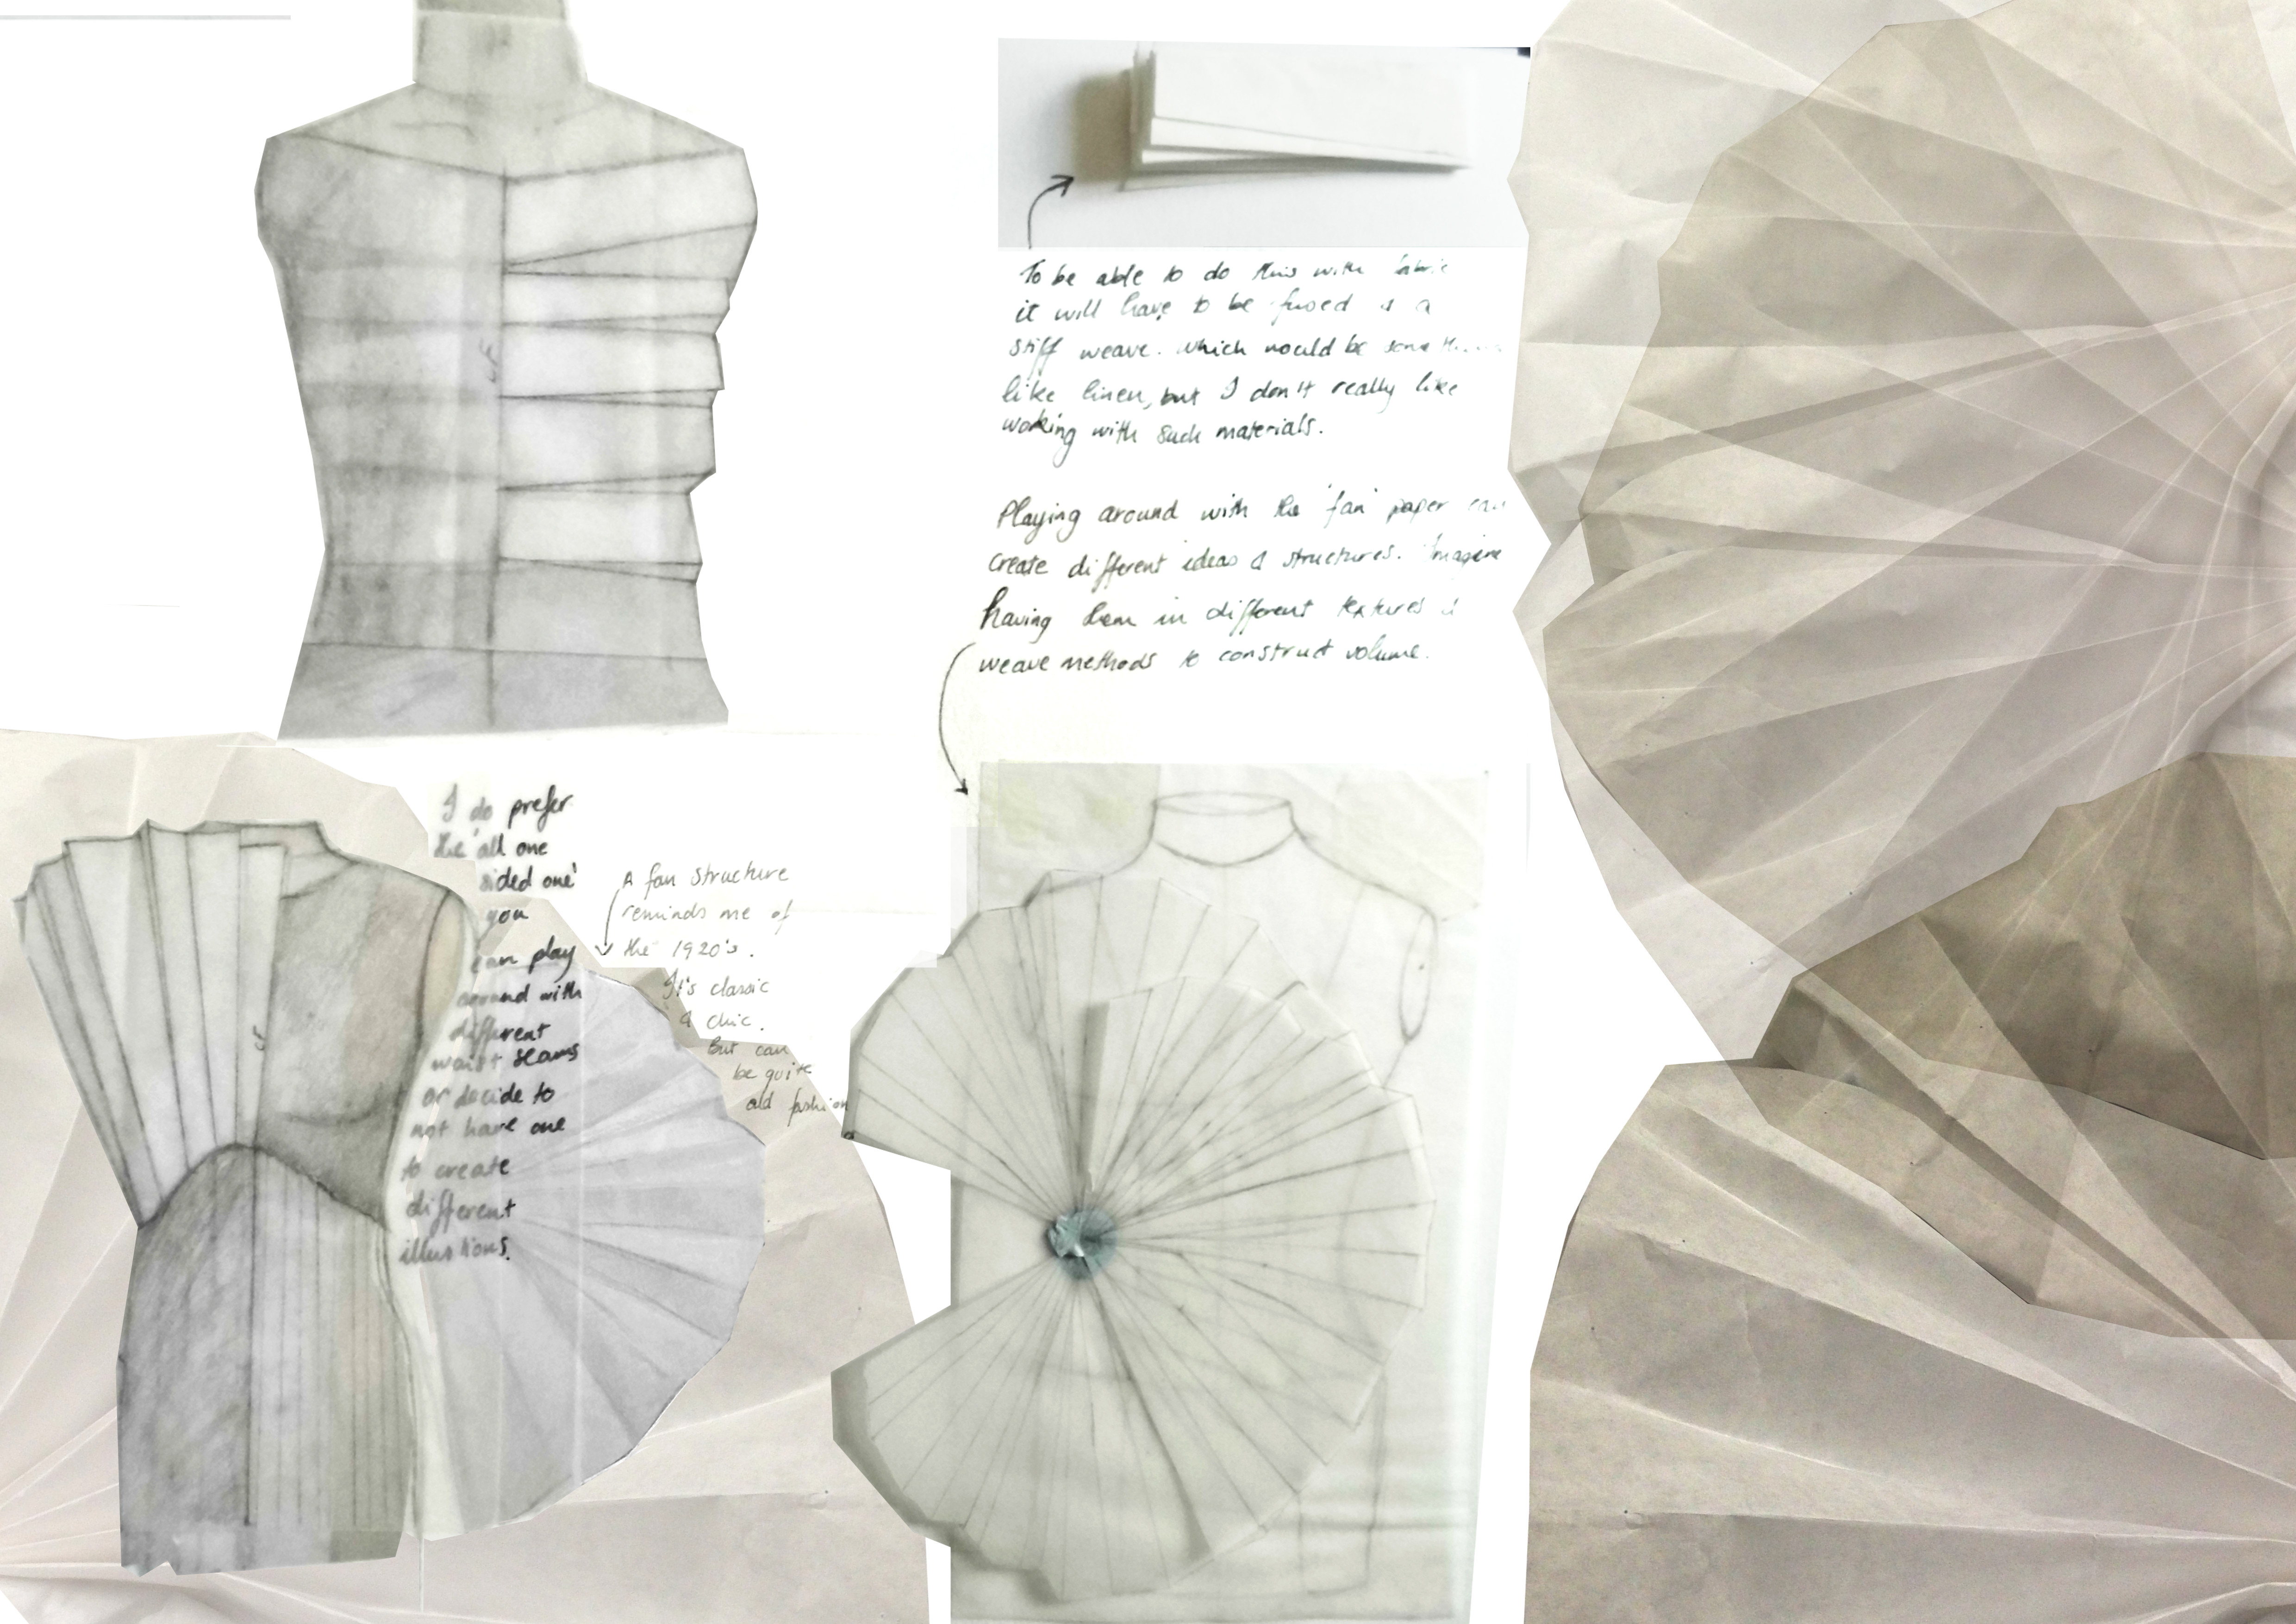 To be able to do this with fabric
it will have to be fused & a
stiff weave. Which would be something
like linen, but I don't really like
working with such materials.
Playing around with the 'fan' paper can
create different ideas & structures. Imagine
having them in different textures &
weave methods to construct volume.
I do prefer
the 'all one
sided one'
you
can play
around with
different
waist seams
or decide to
not have one
to create
different
illusions.
A fan structure
reminds me of
the 1920's.
It's classic
& chic.
But can
be quite
old fashion